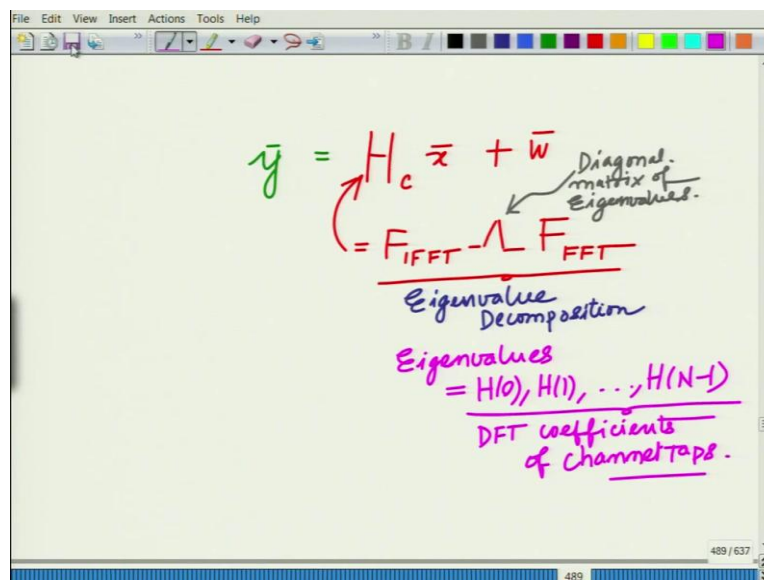 File Edit View Insert Actions Tools Help
B I
ȳ = H_c x̄ + w̄
Diagonal.
matrix of
Eigenvalues.
= F_IFFT Λ F_FFT
Eigenvalue
Decomposition
Eigenvalues
= H(0), H(1), ..., H(N-1)
DFT coefficients
of channel Taps.
489 / 637
489